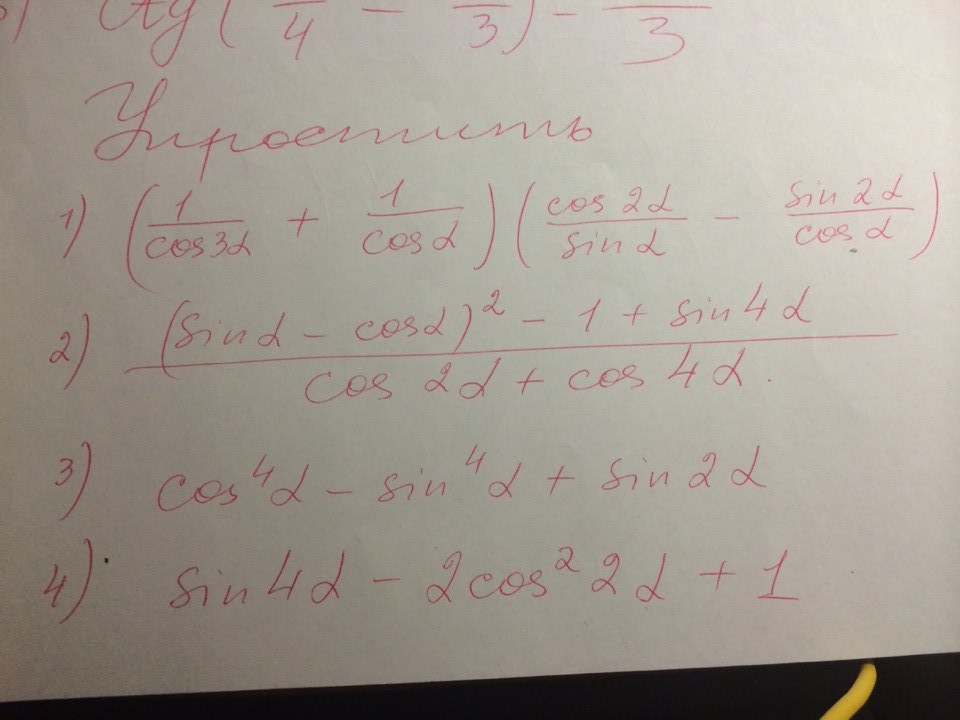 ctg( /4 - /3) - /3
Упростить
1) (1/cos3α + 1/cosα)(cos2α/sinα - sin2α/cosα)
2) ((sinα - cosα)² - 1 + sin4α)/(cos2α + cos4α).
3) cos⁴α - sin⁴α + sin2α
4) sin4α - 2cos²2α + 1